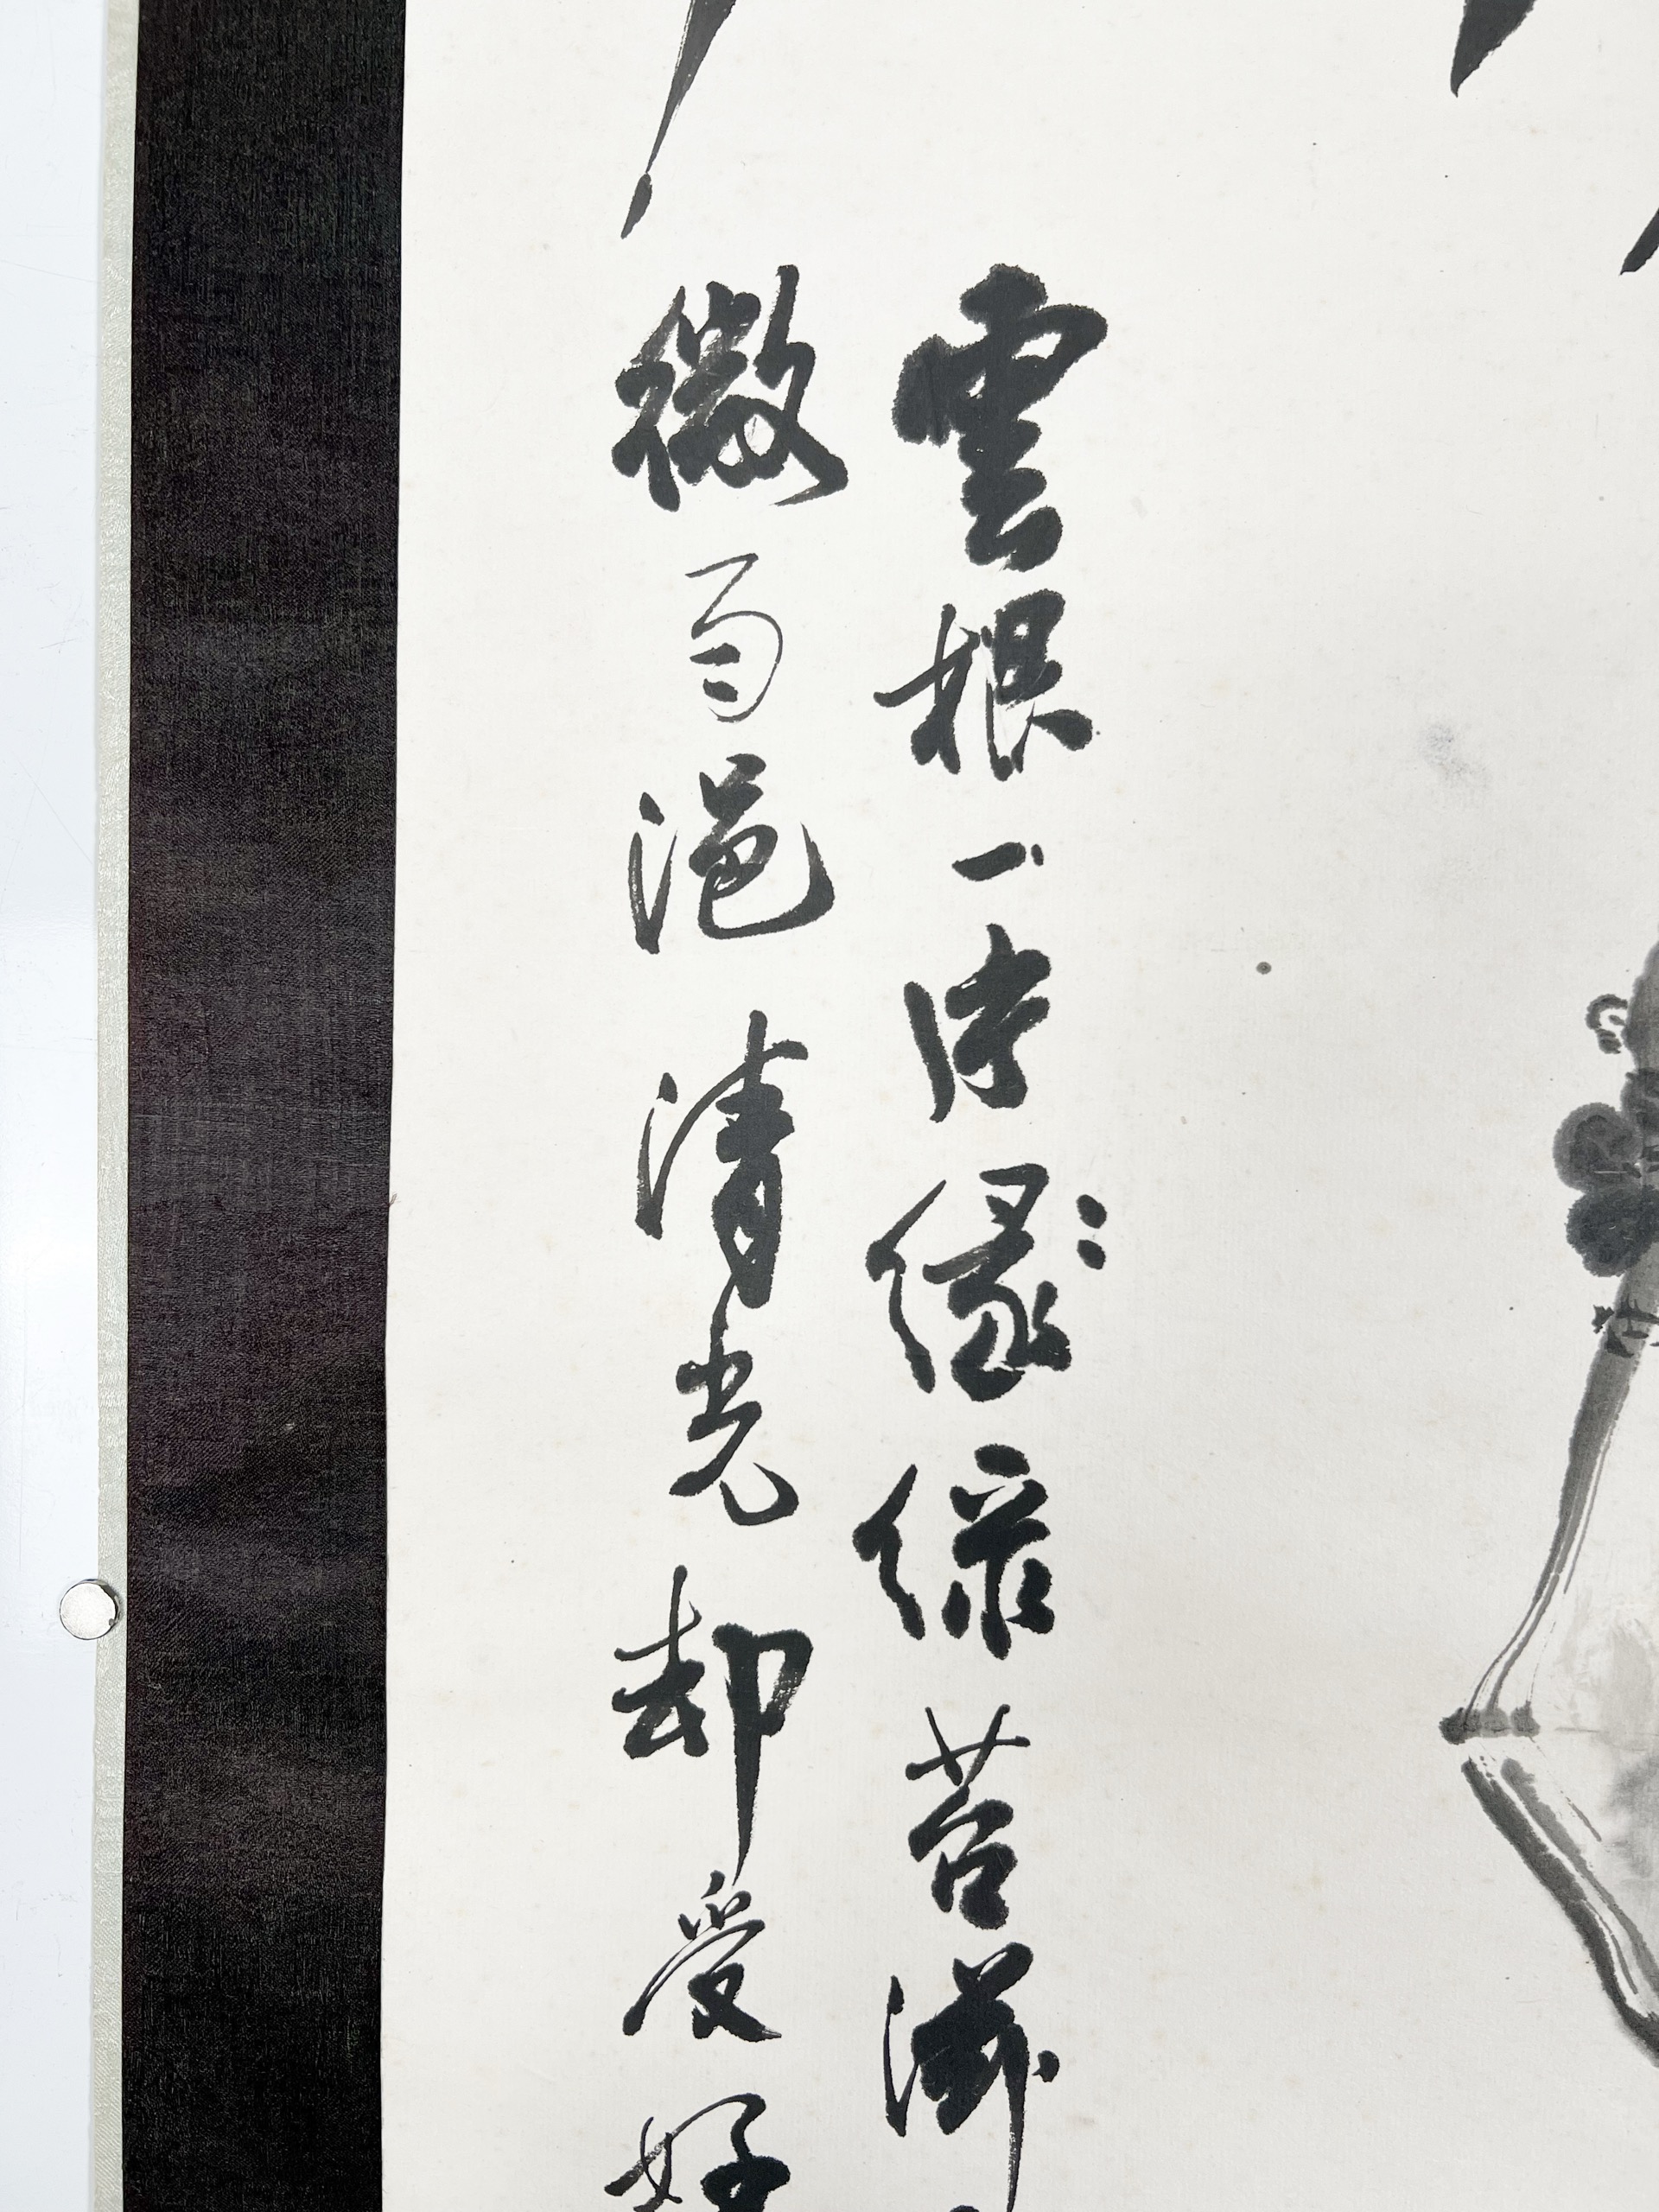 雲根一片緣綠苔滿
微雨浥清光却愛好